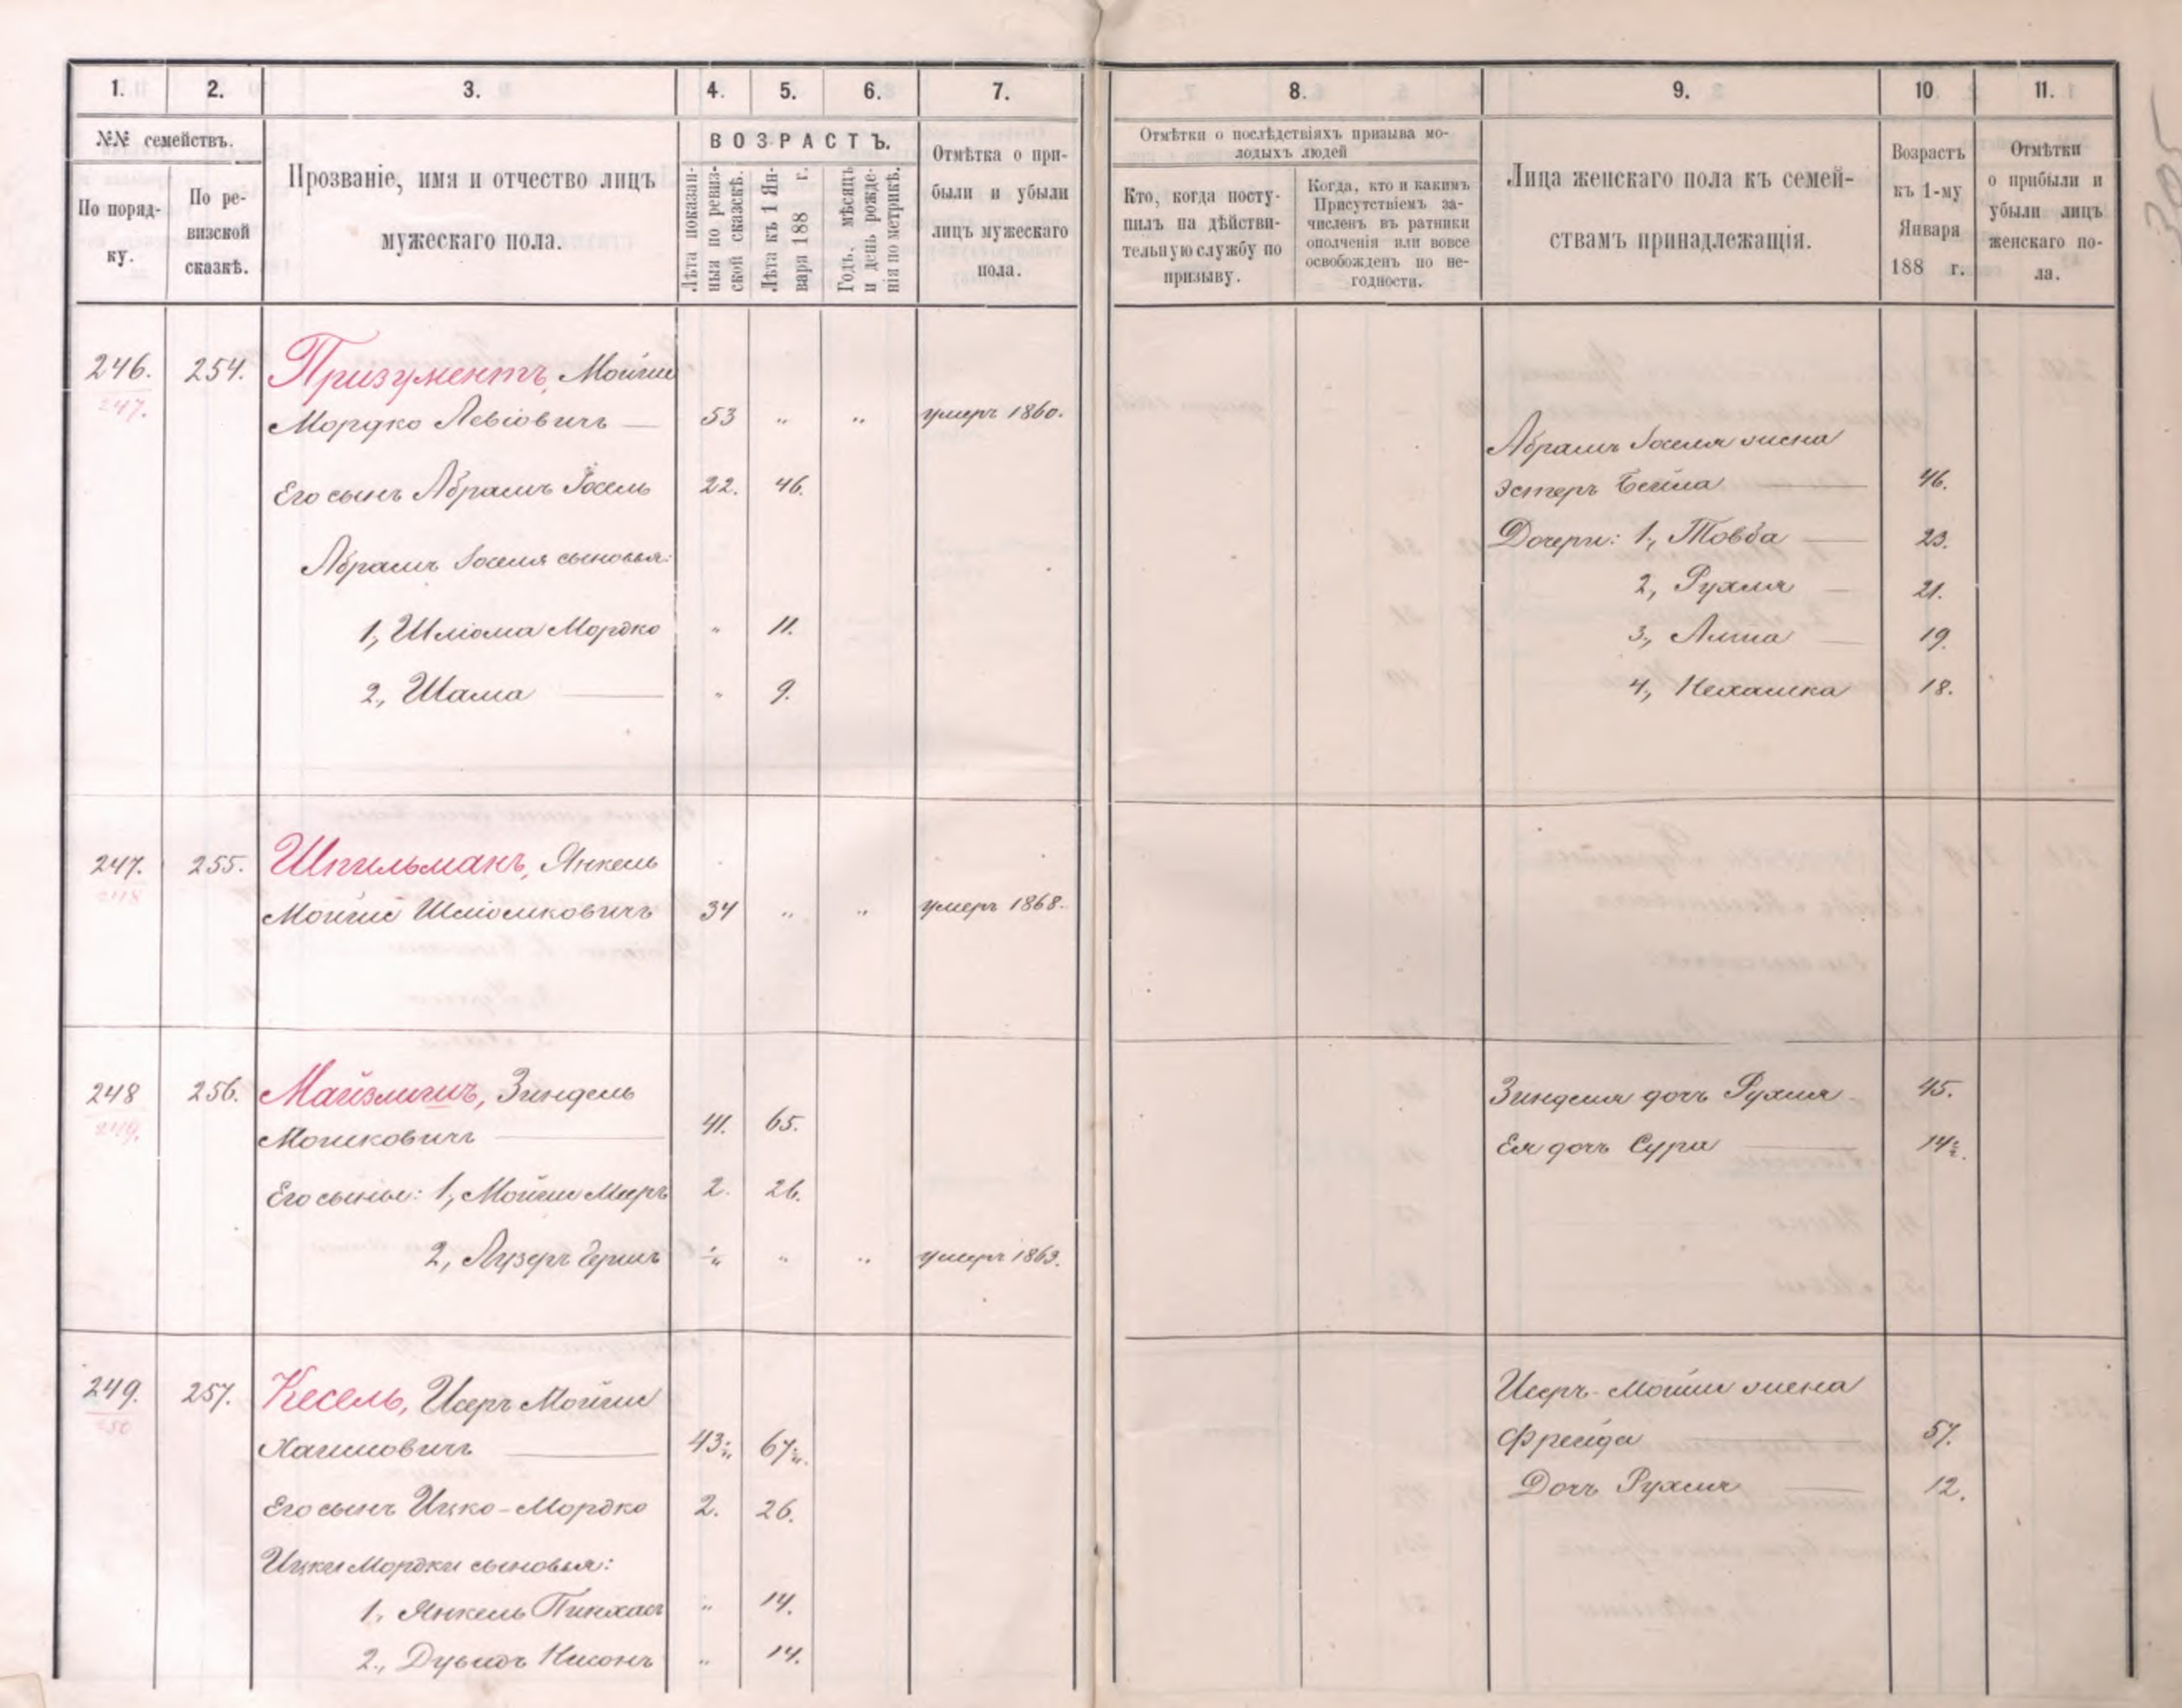 1. 2. 3. 4. 5. 6. 7. 8. 9. 10 11.
№№ семействъ.
По поряд-
ку.
По ре-
визской
сказкѣ.
Прозваніе, имя и отчество лицъ
мужескаго пола.
ВОЗРАСТЪ.
Лѣта показан-
ныя по ревиз-
ской сказкѣ.
Лѣта къ 1 Ян-
варя 188 г.
Годъ, мѣсяцъ
и день рожде-
нія по метрикѣ.
Отмѣтка о при-
были и убыли
лицъ мужескаго
пола.
Отмѣтки о послѣдствіяхъ призыва мо-
лодыхъ людей
Кто, когда посту-
пилъ на дѣйстви-
тельную службу по
призыву.
Когда, кто и какимъ
Присутствіемъ за-
численъ въ ратники
ополченія или вовсе
освобожденъ по не-
годности.
Лица женскаго пола къ семей-
ствамъ принадлежащія.
Возрастъ
къ 1-му
Января
188 г.
Отмѣтки
о прибыли и
убыли лицъ
женскаго по-
ла.
246. 254. Призументъ, Мойше
247. Мордко Левіовичъ — 53 " " умеръ 1860.
Его сынъ Абрамъ Іосель 22. 46.
Абрамъ Іоселя сыновья:
1, Шліома Мордко " 11.
2, Шама — " 9.
Абрамъ Іоселя жена
Эстеръ Бейла — 46.
Дочери: 1, Товба — 23.
2, Рухля — 21.
3, Алта — 19.
4, Нехамка 18.
247. 255. Шпильманъ, Янкель
248 Мойше Шліомковичъ 34 " " умеръ 1868.
248 256. Майзлишъ, Зиндель
249. Мошковичъ — 41. 65.
Его сынье: 1, Мойше Мееръ 2. 26.
2, Лузеръ Гершъ " " умеръ 1863.
Зинделя дочь Рухля 45.
Ея дочь Сура — 14½.
249. 257. Кесель, Исеръ Мойше
250 Хаимовичъ — 43½ 67½.
Его сынъ Ицко-Мордко 2. 26.
Ицки Мордки сыновья:
1, Янкель Пинхасъ " 14.
2, Дувидъ Нисонъ " 14.
Исеръ-Мойши жена
Фрейда — 57.
Дочь Рухля — 12.
305